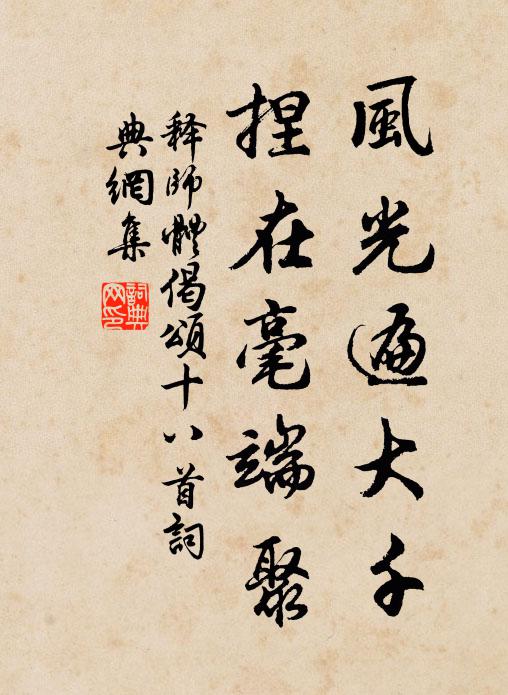 風光遍大千
捏在毫端聚
释師體偈頌十八首詞
典網集
詞典
网印